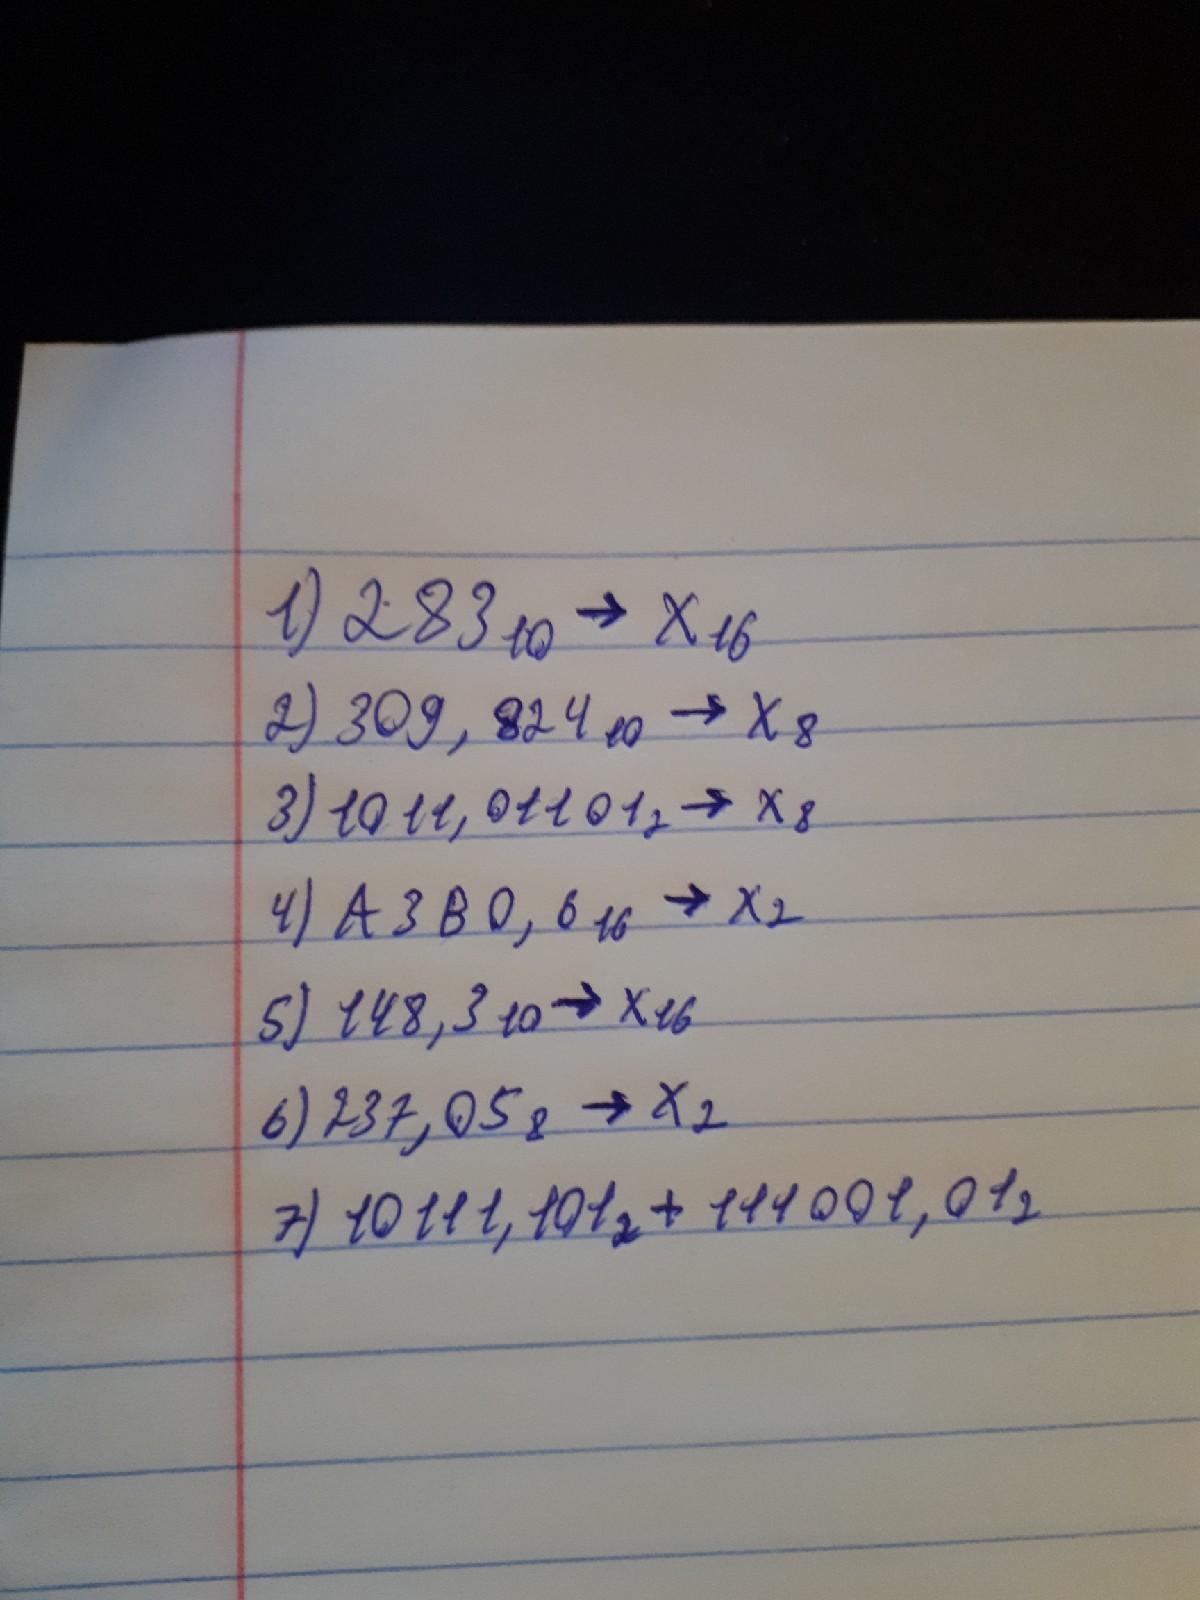 1) 283₁₀ → X₁₆
2) 309,824₁₀ → X₈
3) 1011,01101₂ → X₈
4) A3B0,6₁₆ → X₂
5) 148,3₁₀ → X₁₆
6) 237,05₈ → X₂
7) 10111,101₂ + 111001,01₂